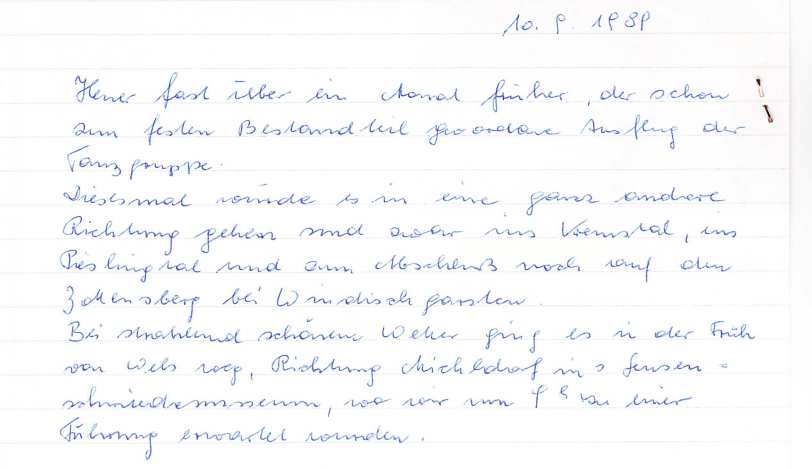 10. 9. 1989
Heuer fast über ein Monat früher, der schon
zum festen Bestandteil gewordene Ausflug der
Tanzgruppe.
Diesesmal würde es in eine ganz andere
Richtung gehen und zwar ins Kremstal, ins
Pieslingtal und zum Abschluß noch auf den
bei Windischgarsten.
Bei strahlend schönem Wetter ging es in der Früh
von Wels weg, Richtung Micheldorf ins Sensen=
schmiedemuseum, wo wir um 9h zu einer
Führung erwartet wurden.